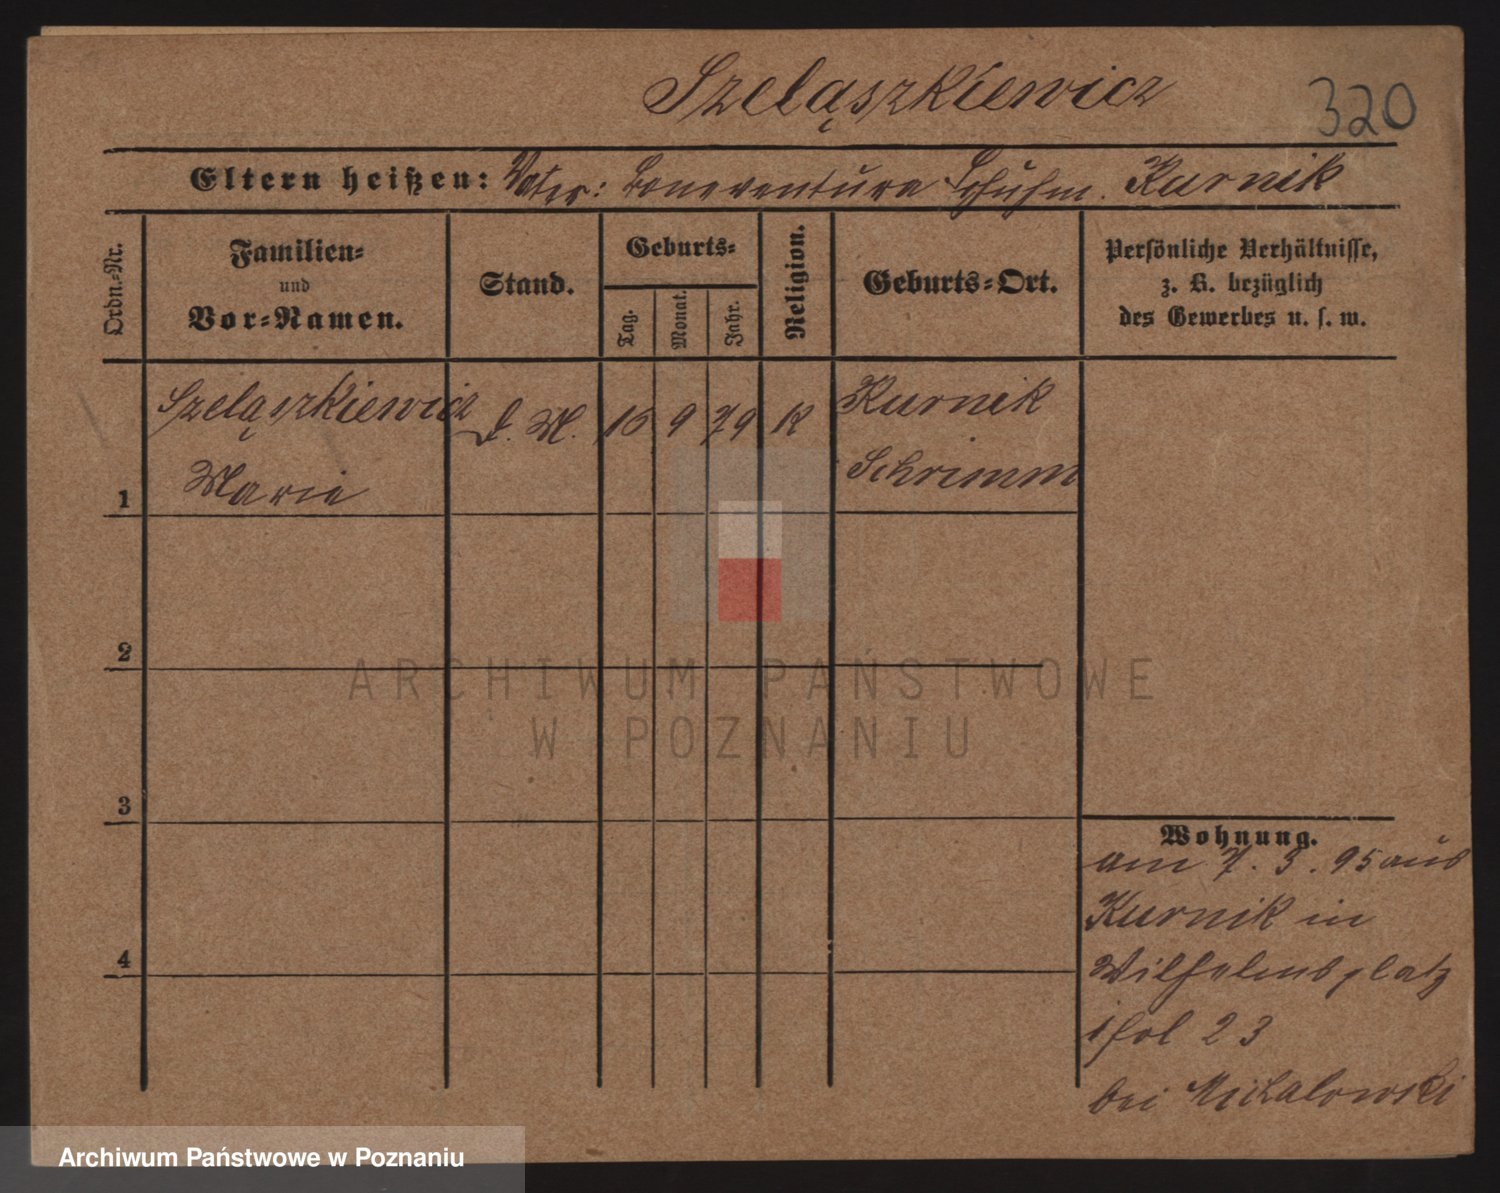 Szelązkiewicz
320
Eltern heißen: Vater: Bonaventura Schuhm. Kurnik
Ordn.-Nr.
Familien-
und
Vor-Namen.
Stand.
Geburts-
Tag.
Monat.
Jahr.
Religion.
Geburts-Ort.
Persönliche Verhältnisse,
z. B. bezüglich
des Gewerbes u. s. w.
Szelązkiewicz
Marie
1
d. M.
9
79
K
Kurnik
Schrimm
2
ARCHIWUM PAŃSTWOWE
W POZNANIU
3
4
Wohnung.
am 7. 3. 95 aus
Kurnik in
Wilhelmsplatz
23
bei Michalowski
Archiwum Państwowe w Poznaniu